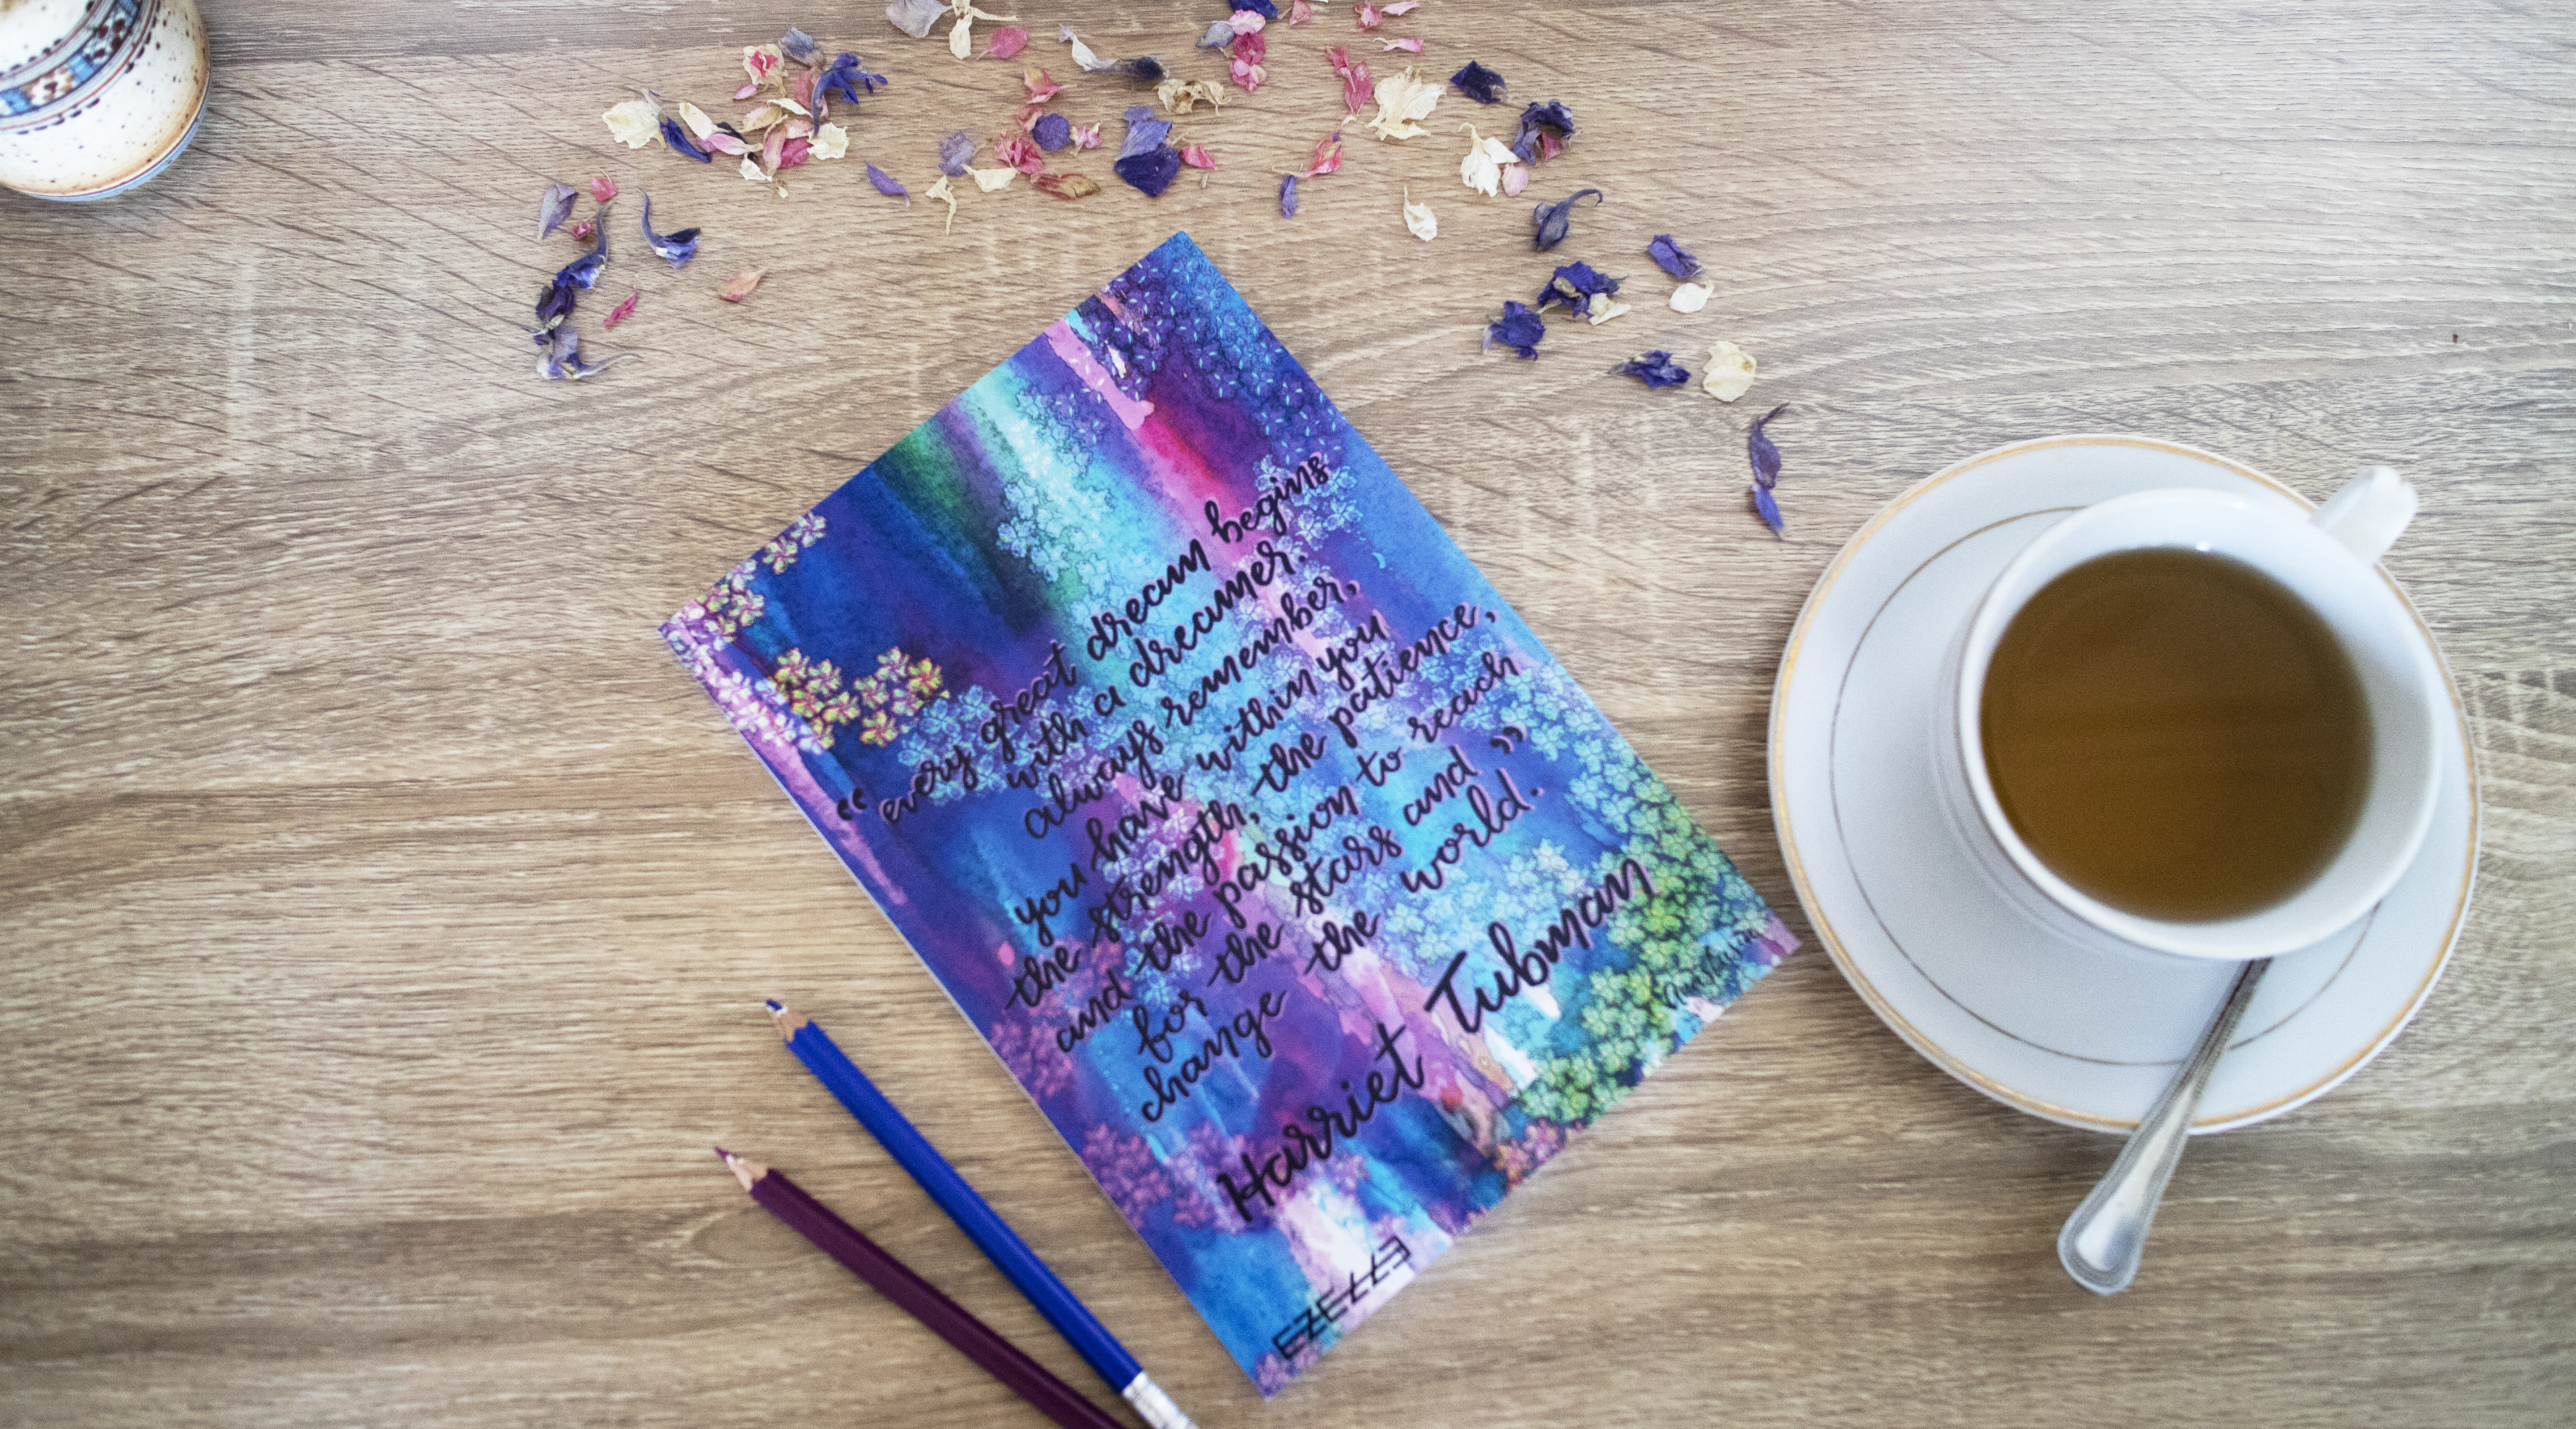 “every great dream begins
with a dreamer.
always remember,
you have within you
the strength, the patience,
and the passion to reach
for the stars and
change the world.”
Harriet Tubman
EZELLE